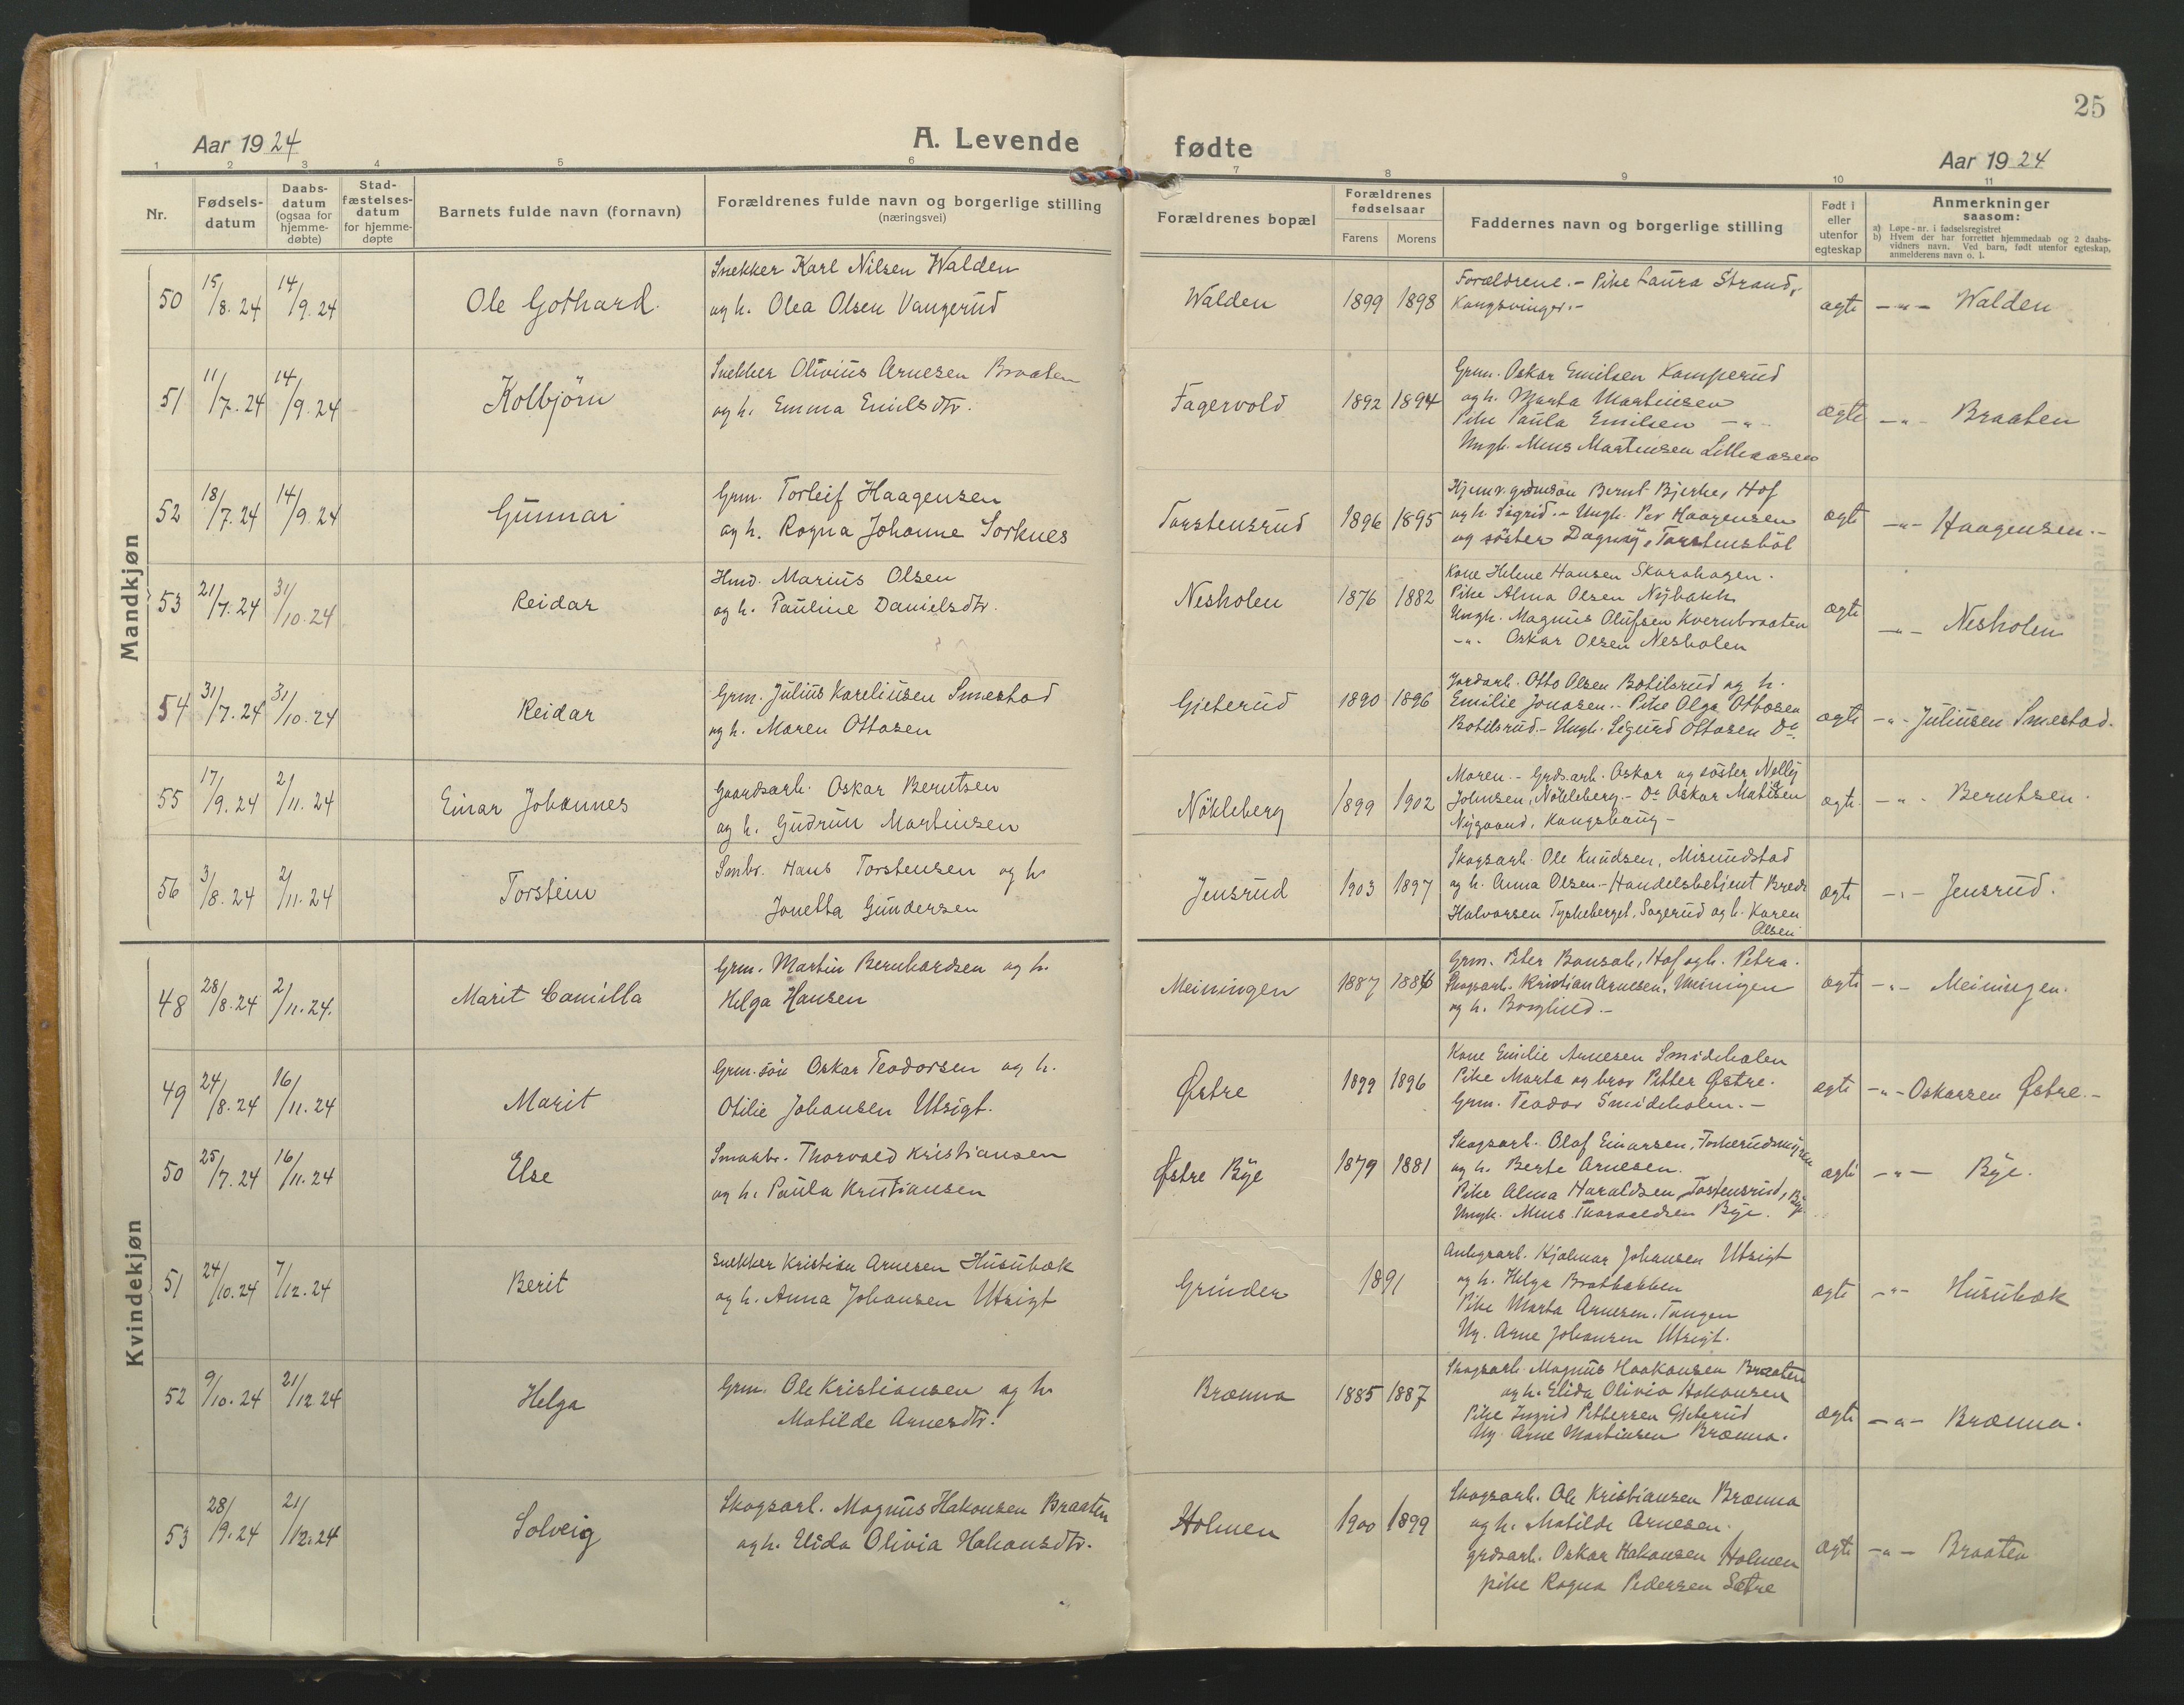 25
Aar 1924
A. Levende fødte
Aar 1924
1 2 3 4 5 6 7 8 9 10 11
Nr.
Fødsels-
datum
Daabs-
datum
(ogsaa for
hjemme-
døbte)
Stad-
fæstelses-
datum
for hjemme-
døpte
Barnets fulde navn (fornavn)
Forældrenes fulde navn og borgerlige stilling
(næringsvei)
Forældrenes bopæl
Forældrenes
fødselsaar
Farens Morens
Faddernes navn og borgerlige stilling
Født i
eller
utenfor
egteskap
Anmerkninger
saasom:
a) Løpe-nr. i fødselsregistret
b) Hvem der har forrettet hjemmedaab og 2 daabs-
vidners navn. Ved barn, født utenfor egteskap,
anmelderens navn o. l.
Mandkjøn
50 15/8.24 14/9.24 Ole Gothard.
Snekker Karl Nilsen Walden
og h. Olea Olsen Vangerud
Walden 1899 1898
Forældrene. - Pike Laura Strand,
Kongsvinger. -
ægte -"- Walden
51 11/7.24 14/9.24 Kolbjörn
Snekker Olivius Arnesen Braaten
og h. Emma Emilsdtr.
Fagervold 1892 1894
Grm. Oskar Emilsen Kamperud
og h. Marta Martinsen
Pike Paula Emilsen -"-
Ungk. Mens Martinsen Lilleaasen
ægte -"- Braaten
52 18/7.24 14/9.24 Gunnar
Grm. Torleif Haagensen
og h. Ragna Johanne Sorknes
Torstensrud 1896 1895
Hjemv. grdmdsön Bernt Bjerke, Hof
og h. Sigrid. - Ungk. Per Haagensen
og söster Dagny, Torstensböl
ægte -"- Haagensen. -
53 21/7.24 31/10.24 Reidar
Hmd. Marius Olsen
og h. Pauline Danielsdtr.
Nesholen 1876 1882
Kone Helene Hansen Skarahagen.
Pike Alma Olsen Nybakk
Ungk. Magnus Olufsen Kvernbraaten
-"- Oskar Olsen Nesholen
ægte -"- Nesholen
54 31/7.24 31/10.24 Reidar
Grm. Julius Kareliusen Smestad
og h. Maren Ottosen
Gjeterud 1890 1896
Jordarb. Otto Olsen Botilsrud og h.
Emilie Jonasen. - Pike Olga Ottosen
Botilsrud. - Ungk. Sigurd Ottosen Do.
ægte -"- Juliusen Smestad.
55 17/9.24 2/11.24 Einar Johannes
Gaardsarb. Oskar Berntsen
og h. Gudrun Martinsen
Nökleberg 1899 1902
Moren. - Grdsarb. Oskar og söster Nelly
Johnsen, Nökleberg. - Do Oskar Matisen
Nygaard, Kongshaug -
ægte -"- Berntsen.
56 3/8.24 2/11.24 Torstein
Smbr. Hans Torstensen og h.
Jonetta Gundersen
Jensrud 1903 1897
Skogsarb. Ole Knudsen, Misundstad
og h. Anna Olsen. - Handelsbetjent
Halvorsen Tyskeberget, Sagerud og h. Karen
Olsen
ægte -"- Jensrud.
Kvindekjøn
48 28/8.24 2/11.24. Marit Camilla
Grm. Martin Bernhardsen og h.
Helga Hansen
Meiningen 1887 1886
Grm. Peter Bonsak, Hof og h. Petra.
Skogsarb. Kristian Arnesen, Meiningen
og h. Borghild. -
ægte -"- Meiningen.
49 24/8.24 16/11.24 Marit
Grm. sön Oskar Teodorsen og h.
Otilie Johansen Utsigt.
Østre 1899 1896
Kone Emilie Arnesen Smideholen
Pike Marta og bror Petter Østre.
Grm. Teodor Smideholen. -
ægte -"- Oskarsen Østre. -
50 25/7.24 16/11.24 Else
Smaabr. Thorvald Kristiansen
og h. Paula Kristiansen
Østre Bye 1879 1881
Skogsarb. Olaf Einarsen, Foskerudsmyren
og h. Berte Arnesen.
Pike Alma Haraldsen, Tostensrud, Bye
Ungk. Mens Thorvaldsen Bye.
ægte -"- Bye.
51 24/10.24 7/12.24 Berit
Snekker Kristian Arnesen Husubæk
og h. Anna Johansen Utsigt
Grinder 1891
Anlegsarb. Hjalmar Johansen Utsigt
og h. Helga Bratbakken
Pike Marta Arnesen, Tangen
Ug. Arne Johansen Utsigt.
ægte -"- Husubæk
52 9/10.24 21/12.24 Helga
Grm. Ole Kristiansen og h.
Matilde Arnesdtr.
Brænna 1885 1887
Skogsarb. Magnus Haakonsen Braaten
og h. Elida Olivia Hakonsen
Pike Ingrid Pettersen Gjeterud
Ug. Arne Martinsen Brænna.
ægte -"- Brænna.
53 28/9.24 21/12.24 Solveig
Skogsarb. Magnus Hakonsen Braaten
og h. Elida Olivia Hakonsdtr.
Holmen 1900 1899
Skogsarb. Ole Kristiansen Brænna
og h. Matilde Arnesen.
grdsarb. Oskar Hakonsen Holmen
pike Ragna Pedersen Sætre
ægte -"- Braaten